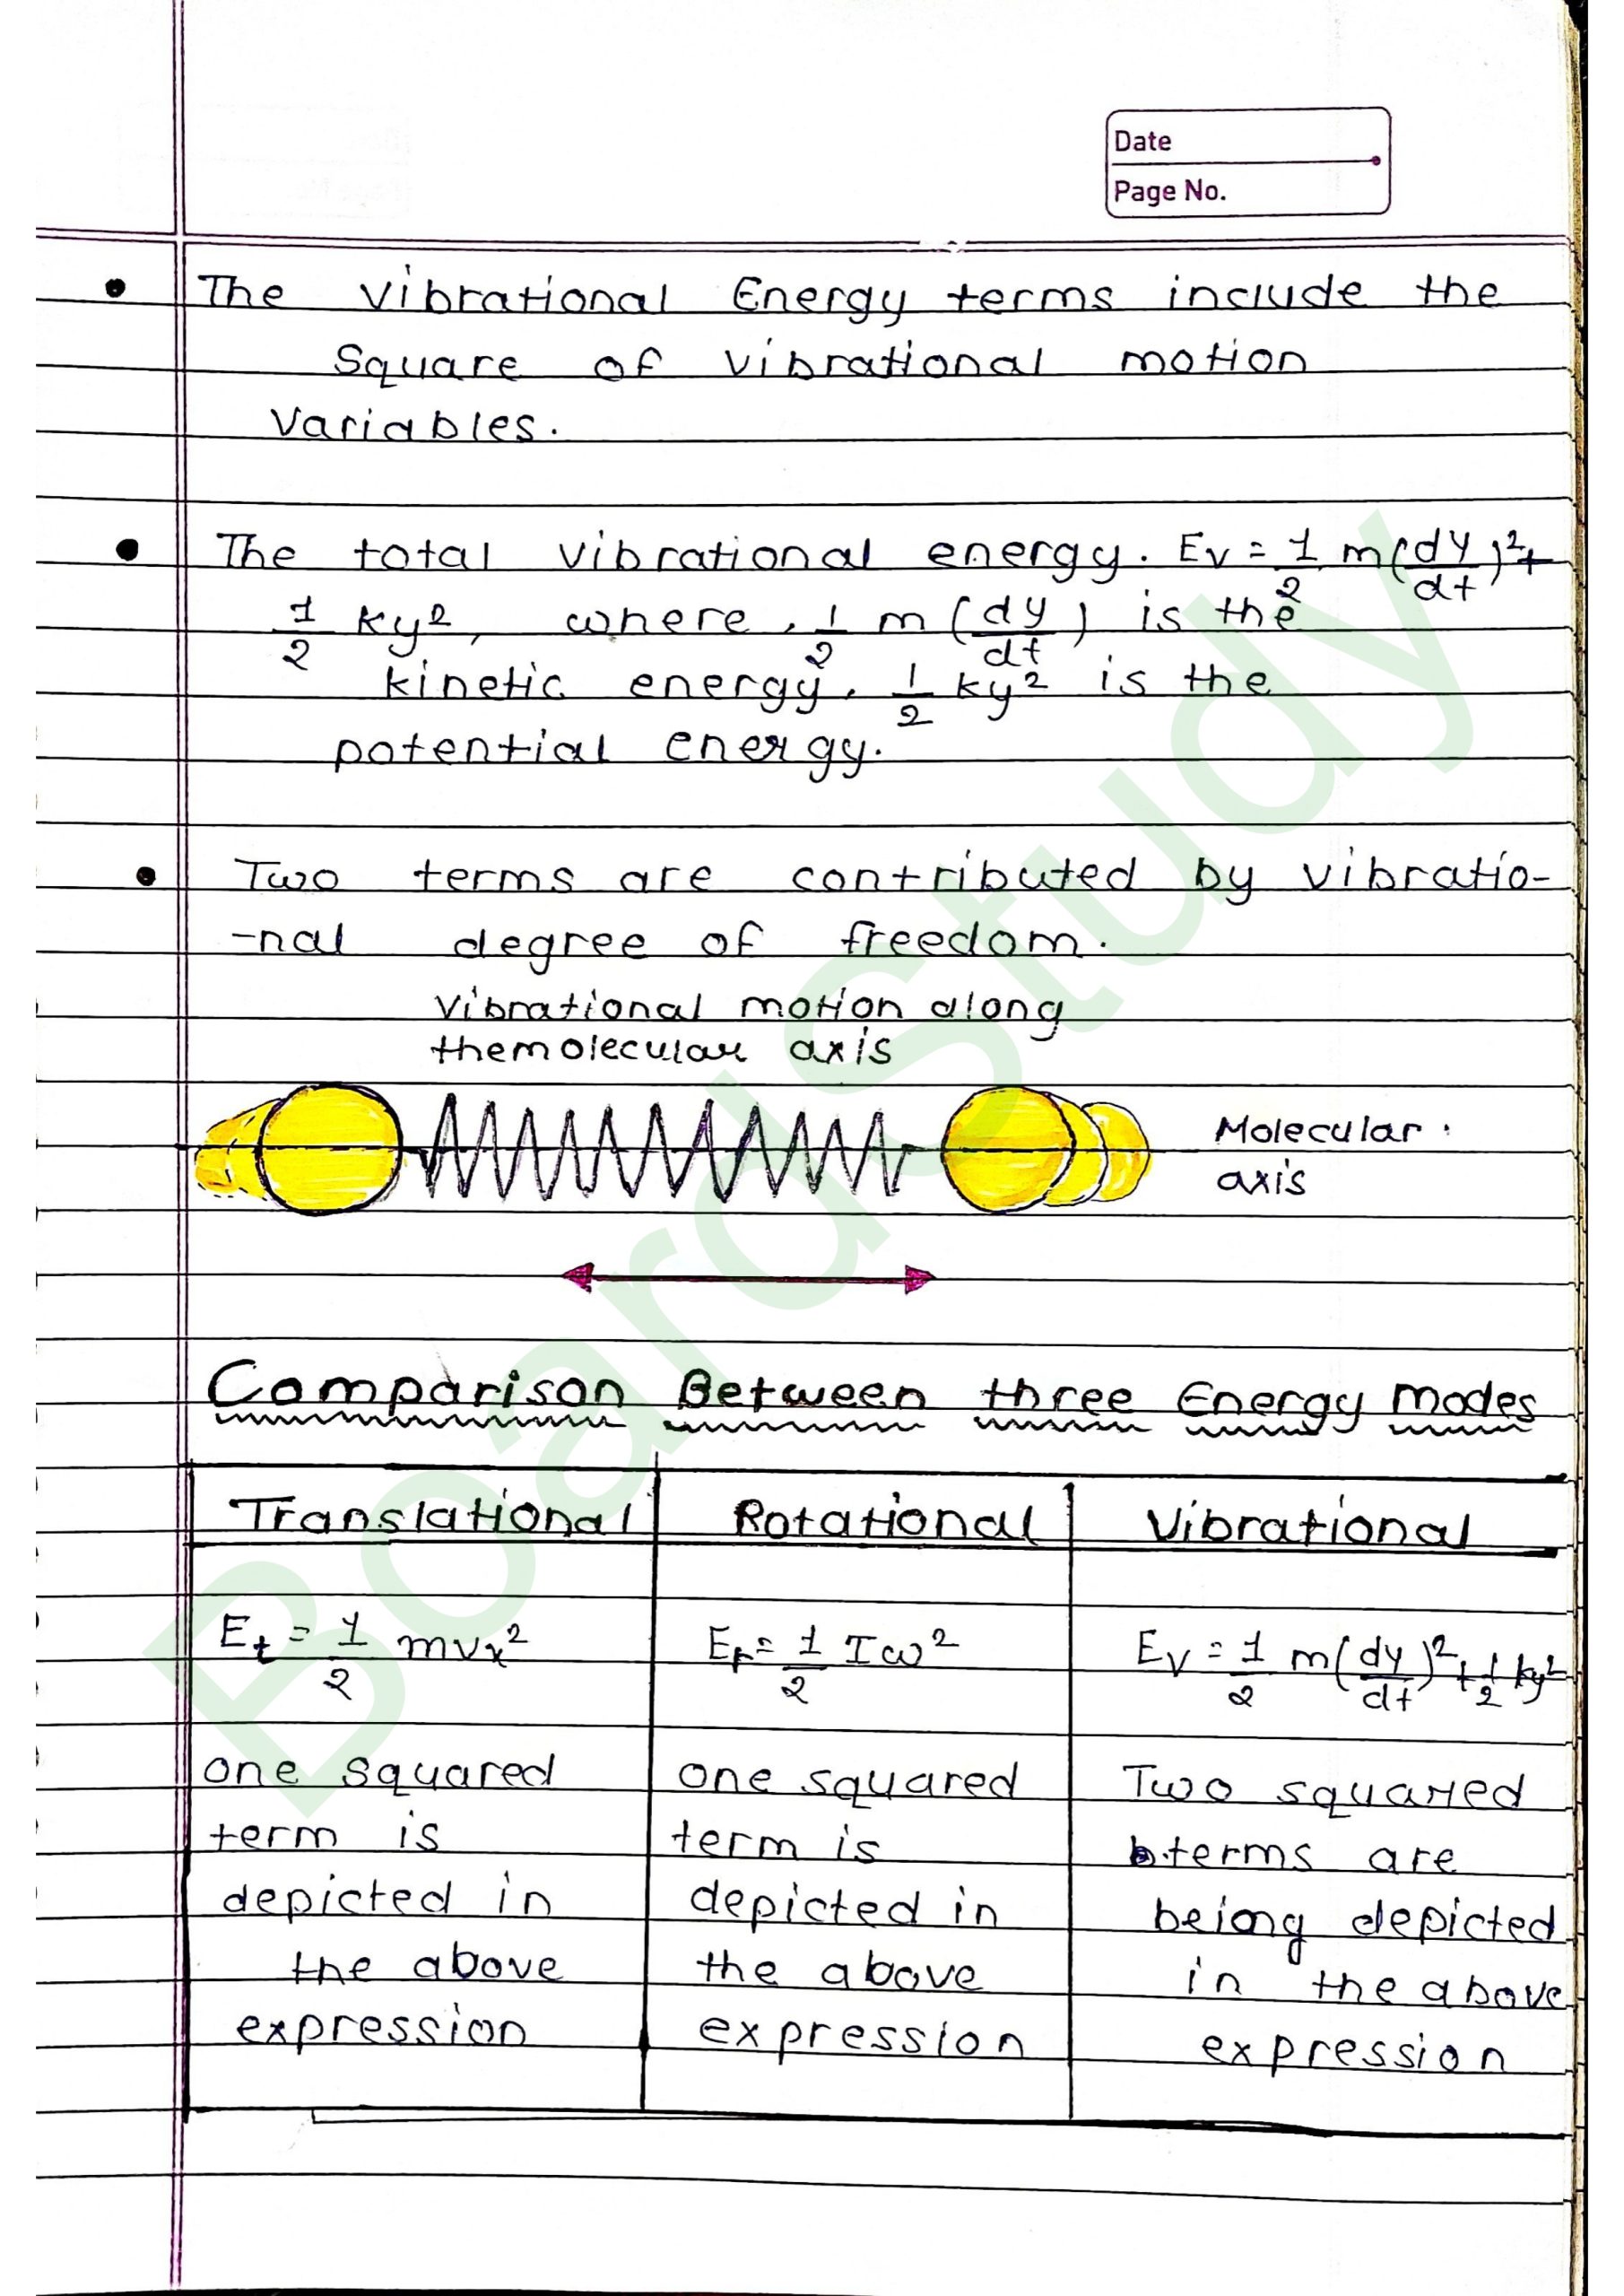 Date
Page No.
• The vibrational Energy terms include the
Square of vibrational motion
Variables.
• The total vibrational energy. Ev = 1/2 m(dy/dt)² +
1/2 ky², where, 1/2 m (dy/dt) is the
kinetic energy. 1/2 ky² is the
potential energy.
• Two terms are contributed by vibratio-
-nal degree of freedom.
Vibrational motion along
themolecular axis
Molecular.
axis
Comparison Between three Energy modes
Translational Rotational Vibrational
Et = 1/2 mvx² Er = 1/2 Iω² Ev = 1/2 m(dy/dt)² + 1/2 ky²
one squared
term is
depicted in
the above
expression
one squared
term is
depicted in
the above
expression
Two squared
terms are
beiong depicted
in the above
expression
BoardStudy